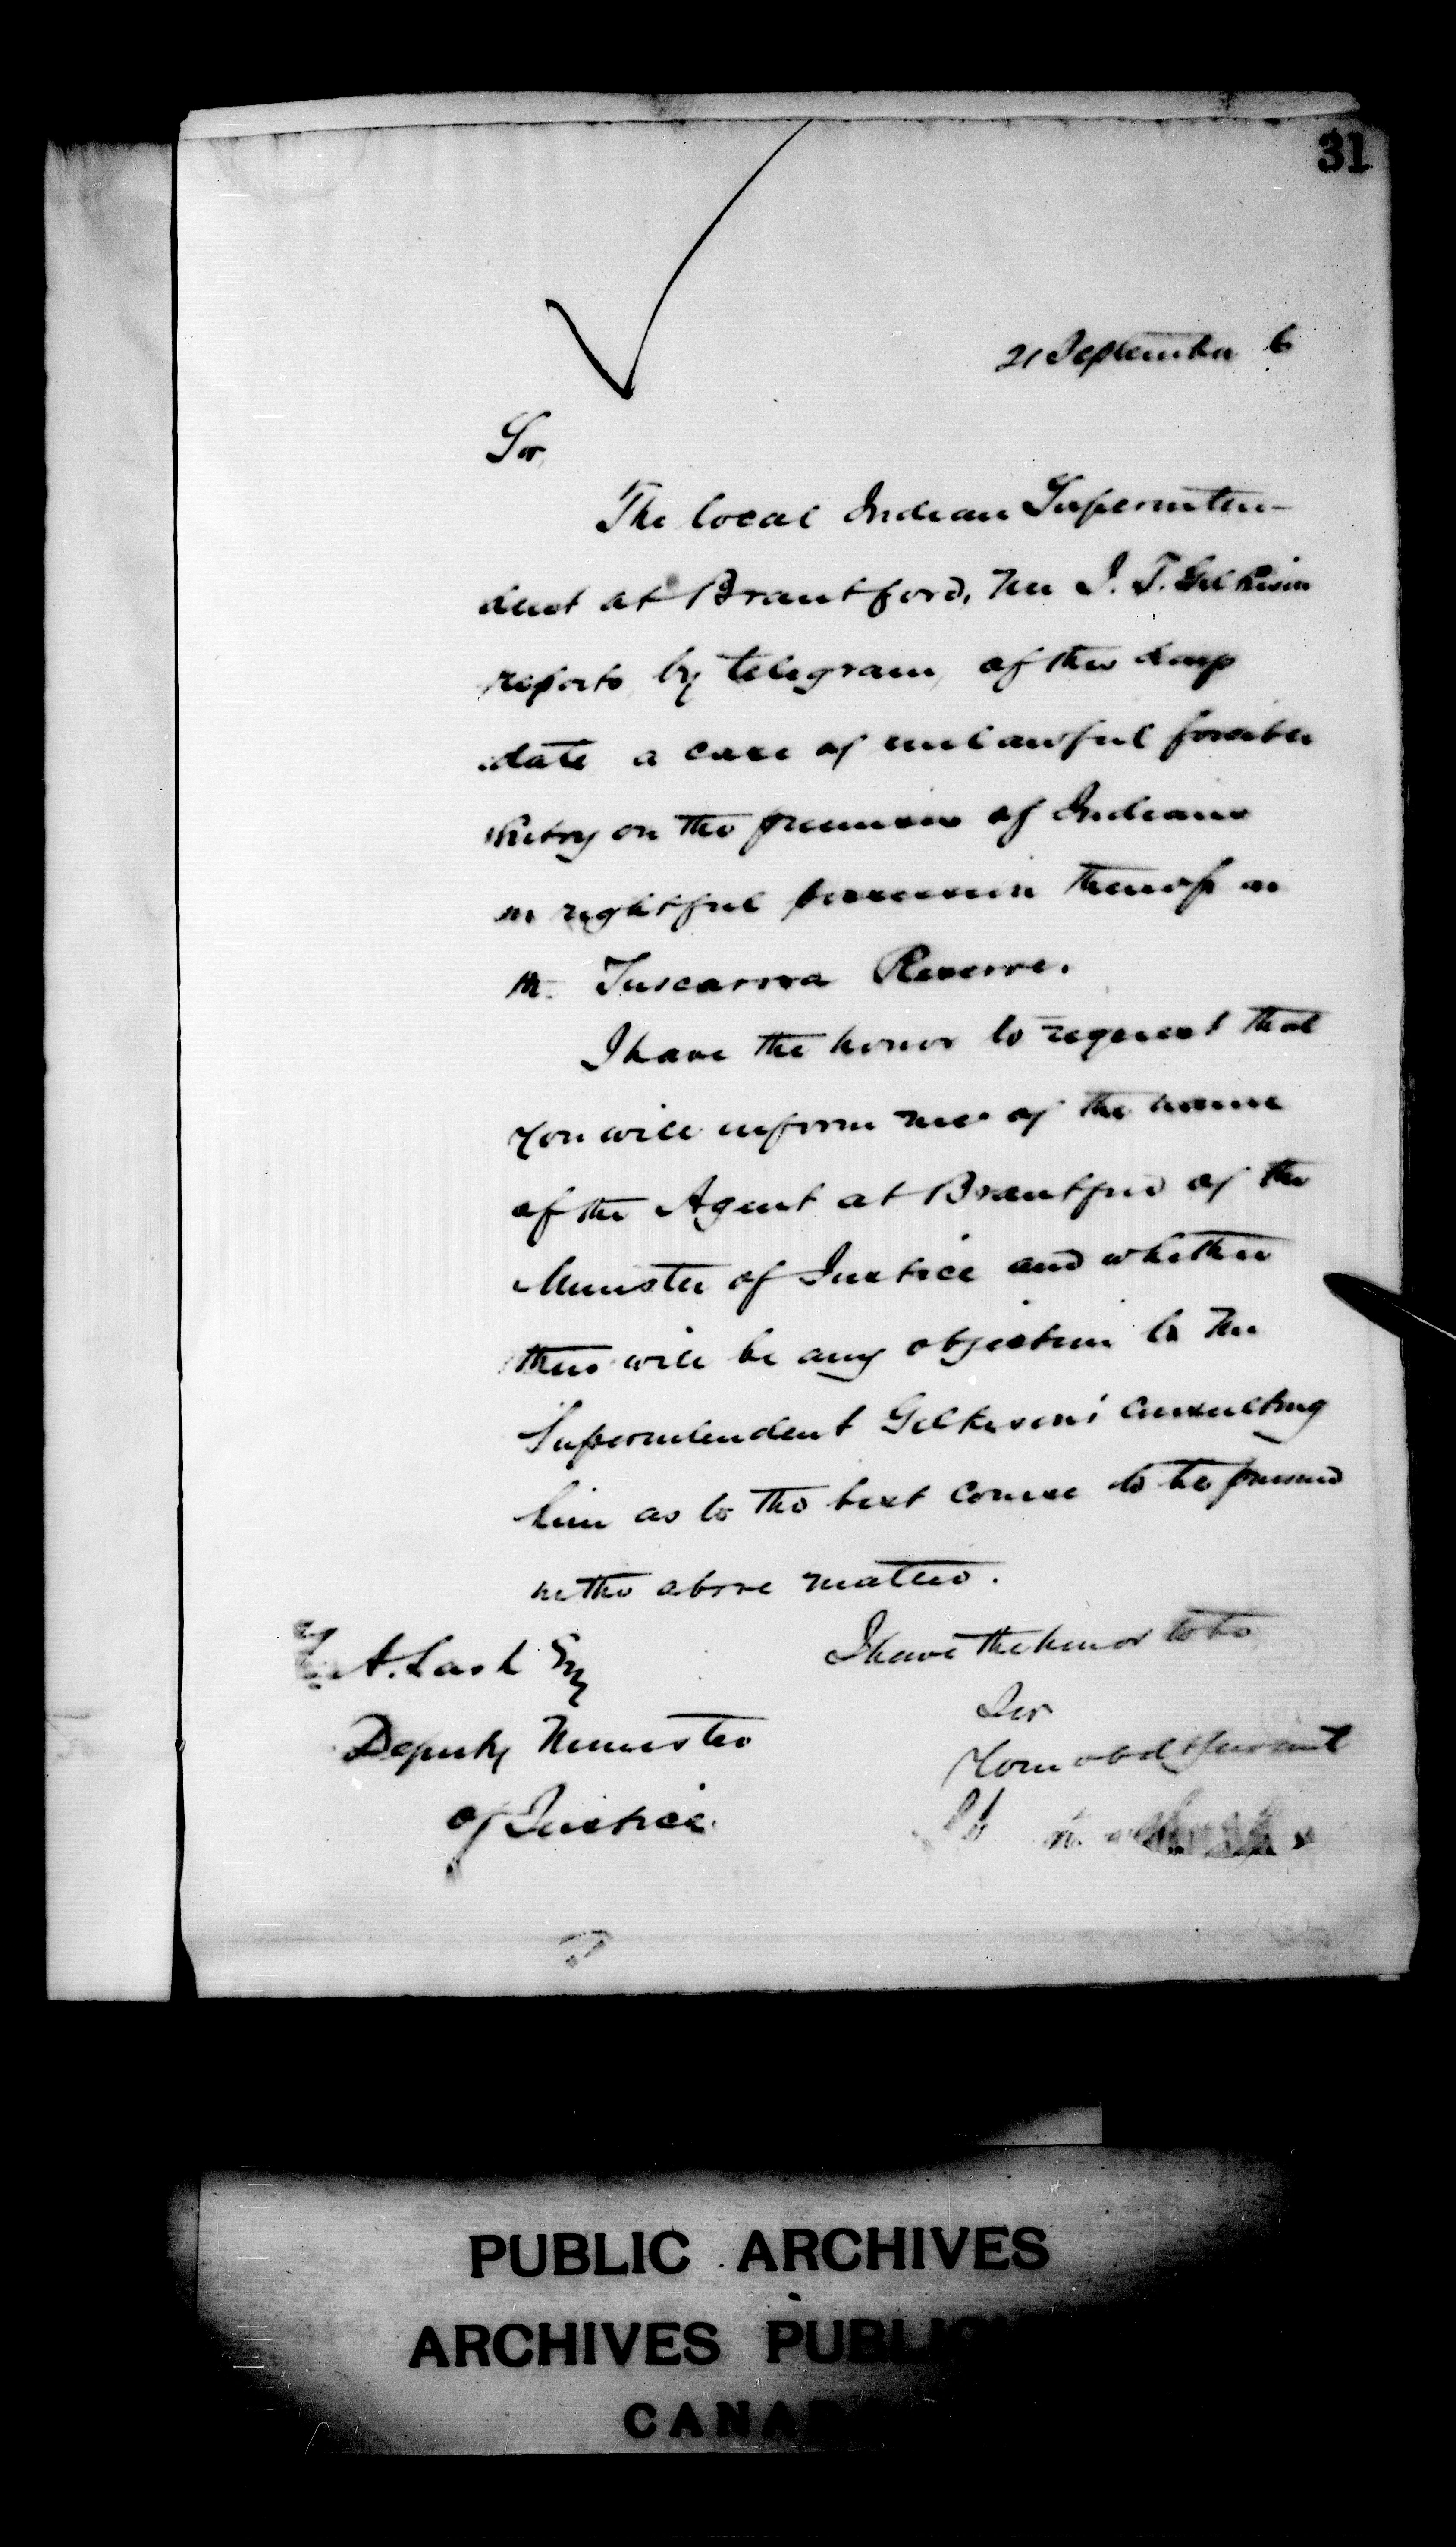 31
21 September 6
Sir,
The local Indian Superinten-
dent at Brantford, Mr J. T. Gilkison
reports, by telegram, of this days
date a case of unlawful forcible
entry on the premises of Indians
in rightful possession thereof on
the Tuscarora Reserve.
I have the honor to request that
you will inform me of the name
of the Agent at Brantford of the
Minister of Justice and whether
there will be any objection to Mr
Superintendent Gilkison's consulting
him as to the best course to be pursued
in the above matter.
I have the honor to be
Sir
Your obdt servant
A. Lash Esq
Deputy Minister
of Justice.
PUBLIC ARCHIVES
ARCHIVES PUBLI
CANA